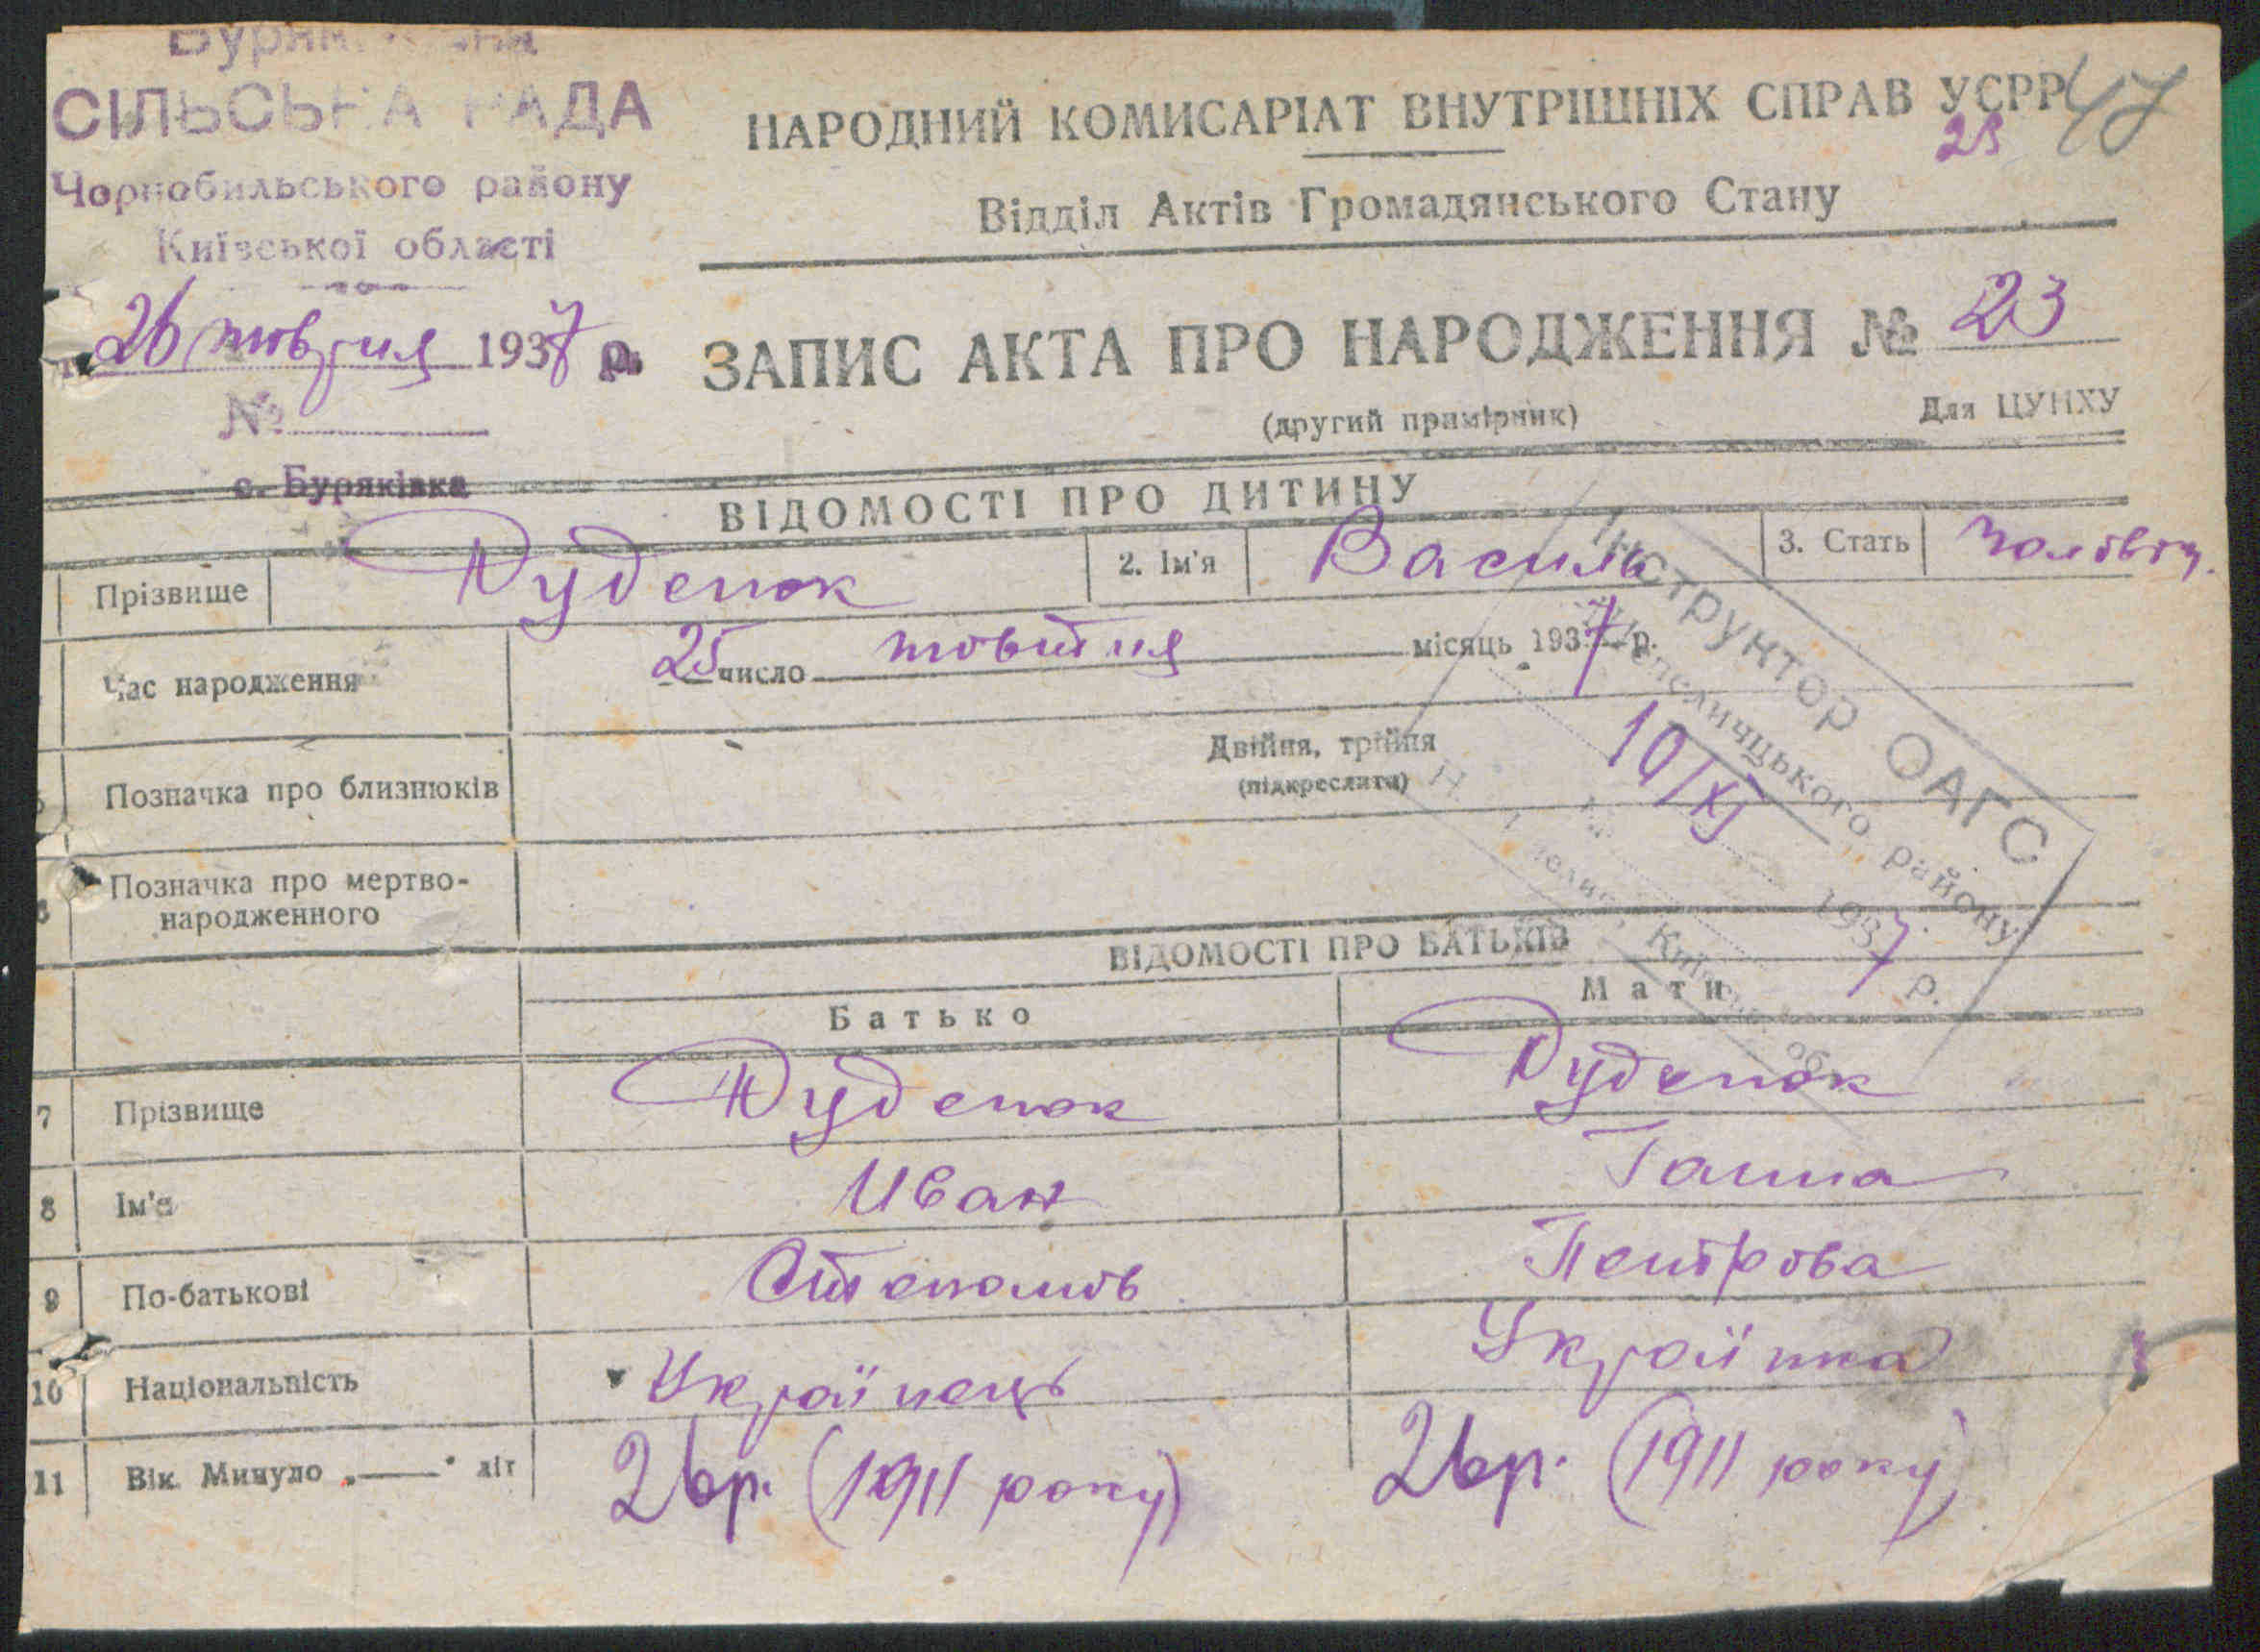 СІЛЬСЬКА РАДА
Чорнобильського району
Київської області
26 товтня 1937 р.
№
с. Буряківка
47
НАРОДНИЙ КОМИСАРІАТ ВНУТРІШНІХ СПРАВ УСРР
23
Відділ Актів Громадянського Стану
ЗАПИС АКТА ПРО НАРОДЖЕННЯ № 23
(другий примірник)
Для ЦУНХУ
ВІДОМОСТІ ПРО ДИТИНУ
Прізвище Руденок 2. Ім'я Василь 3. Стать
Час народження 25 число товтня місяць 1937 р.
Позначка про близнюків Двійня, трійня
(підкреслити)
Позначка про мертво-
народженного
Інструктор ОАГС
району
10/XI 1937 р.
ВІДОМОСТІ ПРО БАТЬКІВ
Батько Мати
7 Прізвище Руденок Руденок
8 Ім'я Иван Ганна
9 По-батькові Степанов Петрова
10 Національність Українець Українка
11 Вік. Минуло „—" літ 26 р. (1911 року) 26 р. (1911 року)